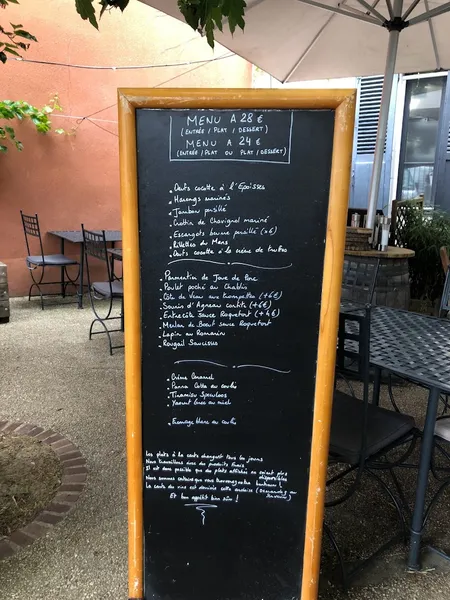 MENU A 28 €
(ENTRÉE / PLAT / DESSERT)
MENU A 24 €
(ENTRÉE / PLAT OU PLAT / DESSERT)
. Oeufs cocotte à l'Epoisses
. Harengs marinés
. Jambon persillé
. Crottin de Chavignol mariné
. Escargots beurre persillé
. Rillettes du Mans
. Oeufs cocotte à la crème de truffes
. Parmentier de Joue de Porc
. Poulet poché au Chablis
. Côte de Veau aux trompettes (+6€)
. Souris d'Agneau confite (+6€)
. Entrecôte Sauce Roquefort (+4€)
. Merlan de Boeuf sauce Roquefort
. Lapin au Romarin
. Rougail Saucisses
. Crème Caramel
. Panna Cotta au coulis
. Tiramisu Speculoos
. Yaourt Grec au miel
. Fromage blanc au coulis
Les plats à la carte changent tous les jours
Nous travaillons avec des produits frais
Il est donc possible que des plats affichés ne soient plus
disponibles
Nous sommes certains que vous trouverez votre bonheur !
La carte des vins est derrière cette ardoise (Demandez au
serveur)
Et bon appétit bien sûr !